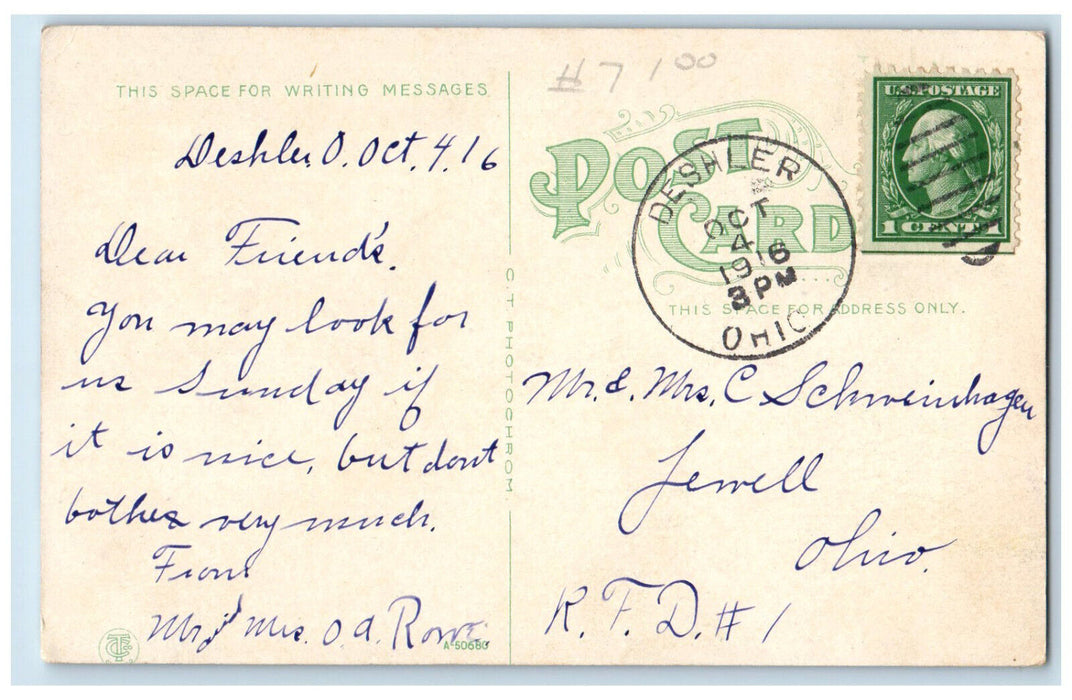 THIS SPACE FOR WRITING MESSAGES
Deshler O. Oct. 4. 16
Dear Friend's.
You may look for
us Sunday if
it is nice, but dont
bother very much.
From
Mr & Mrs. O. A. Rowe
A-50680
C. T. PHOTOCHROM.
#7 100
POST CARD
DESHLER
OCT
4
1916
3 PM
OHIO
U.S. POSTAGE
1 CENT 1
THIS SPACE FOR ADDRESS ONLY.
Mr. & Mrs. C Schweinhagen
Jewell
Ohio.
R. F. D. # 1